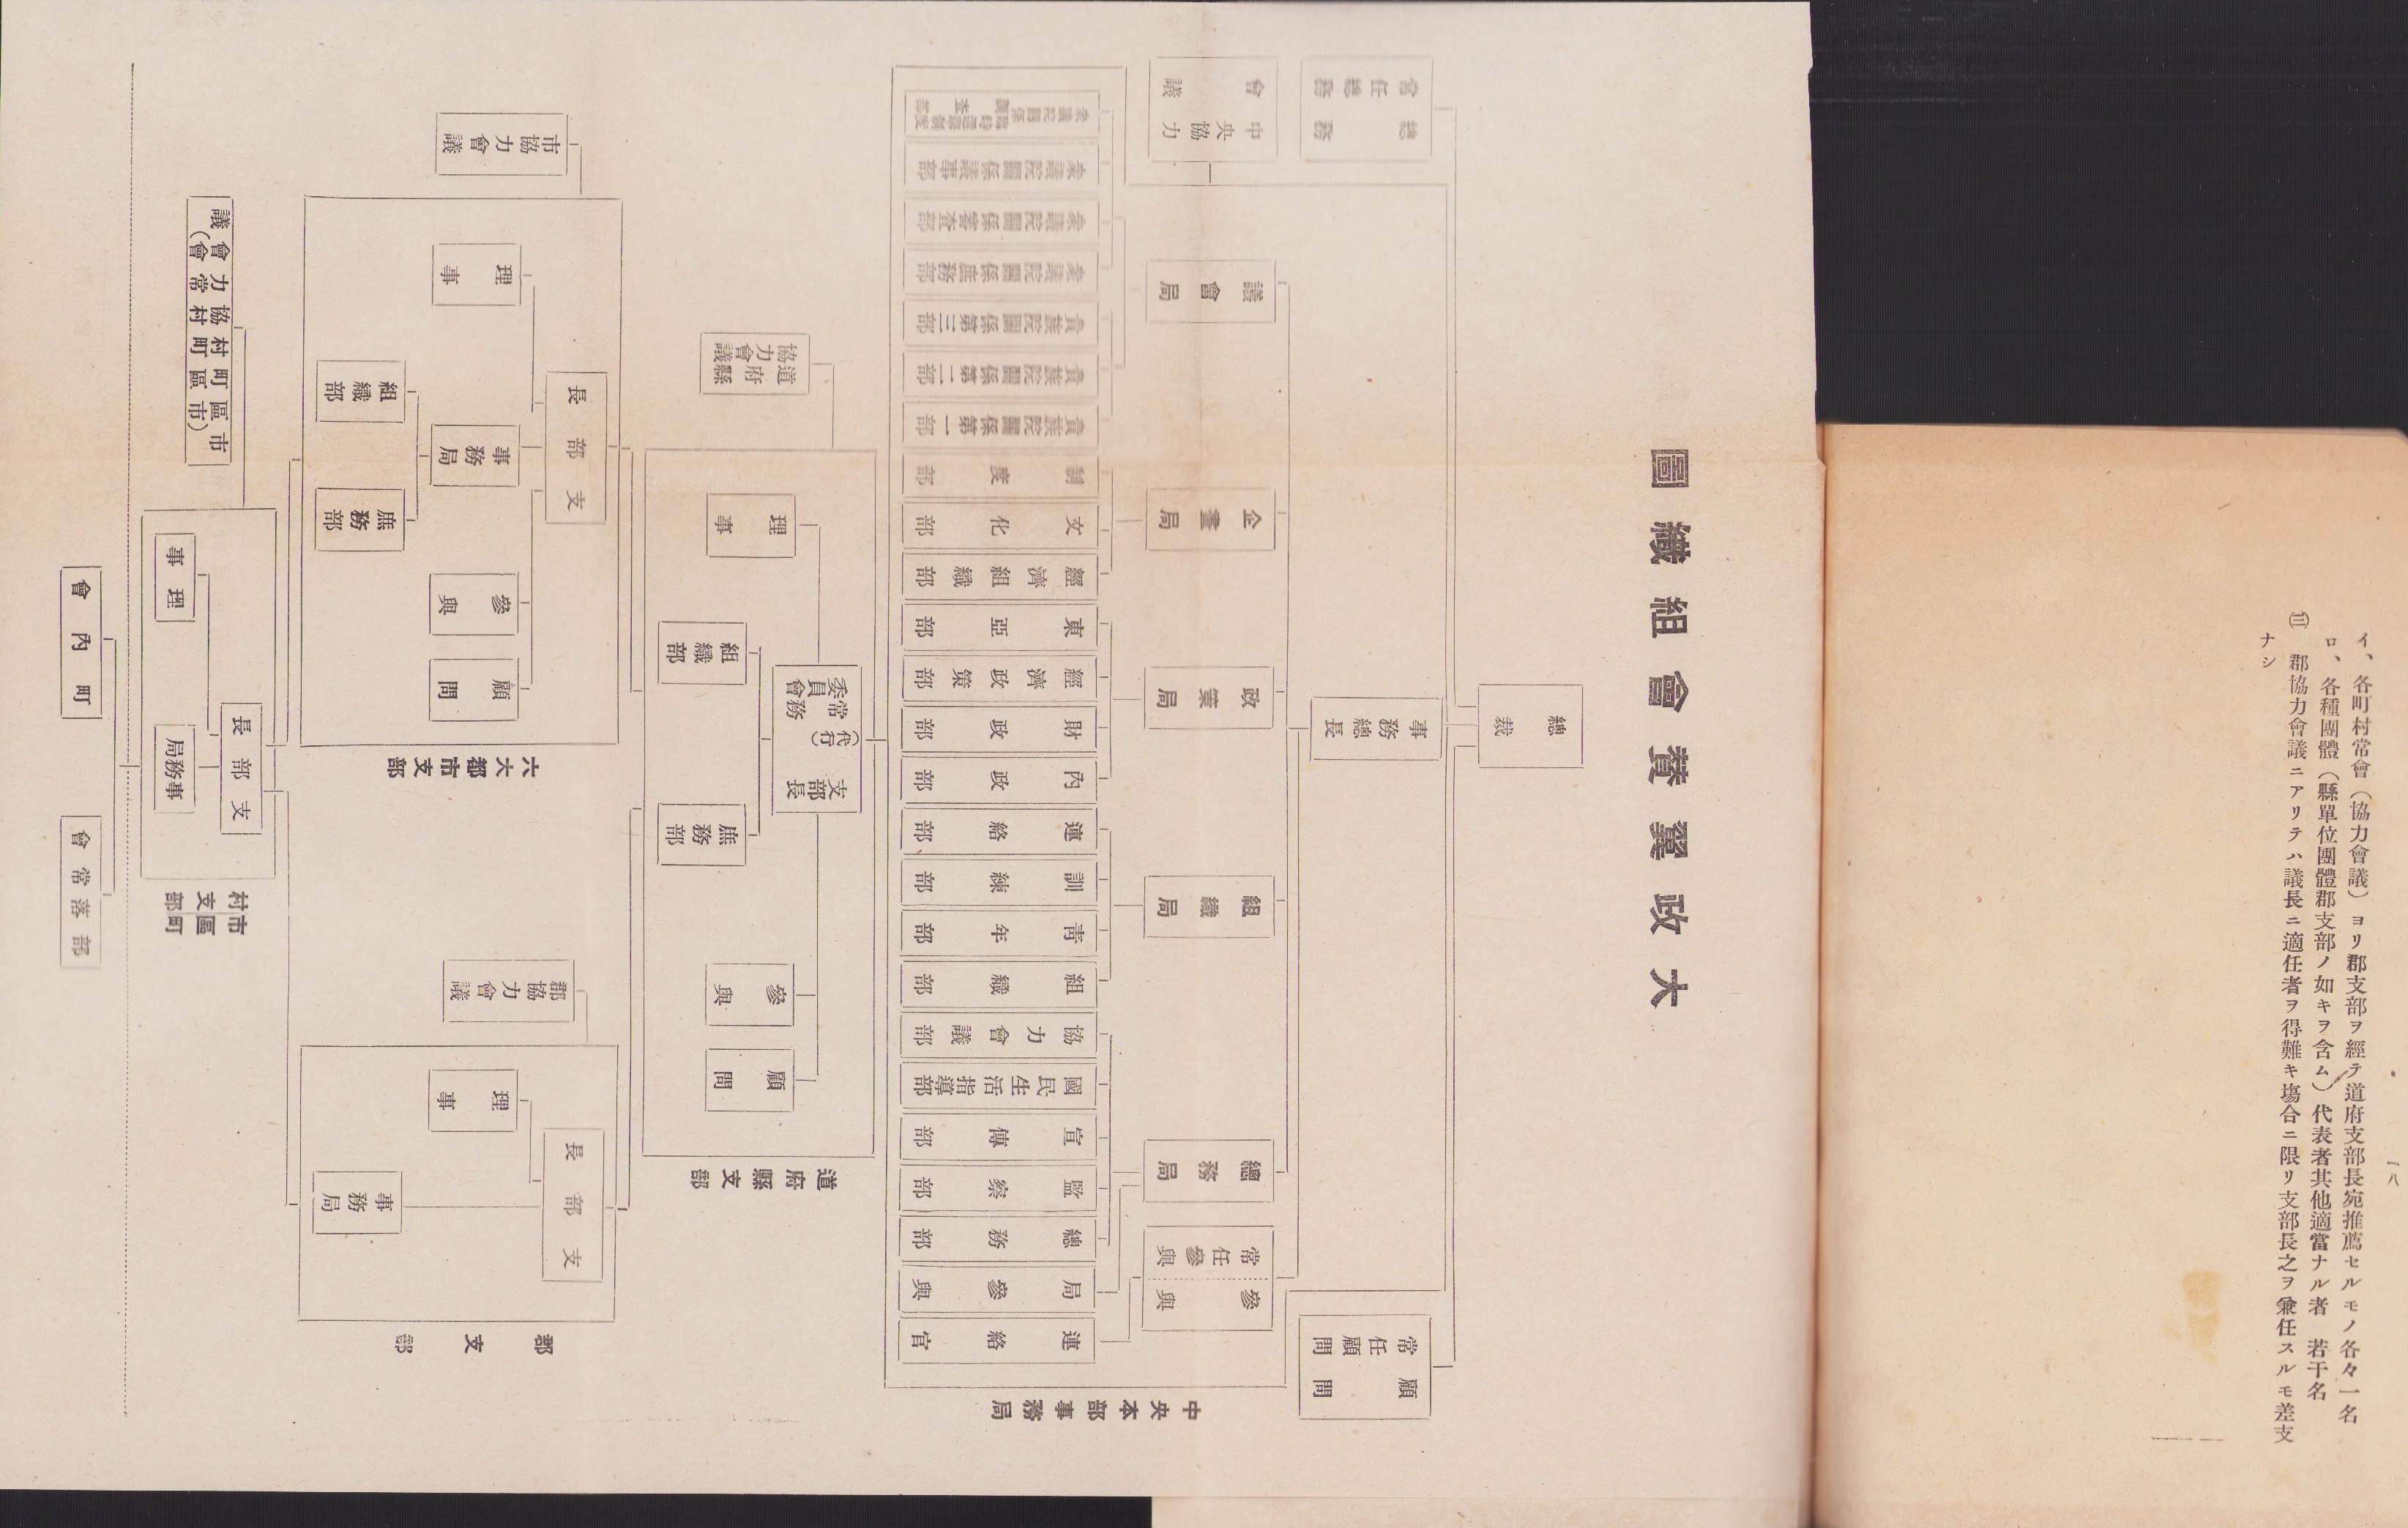 一八
イ、各町村常會(協力會議)ヨリ郡支部ヲ經テ道府支部長宛推薦セルモノ各々一名
ロ、各種團體(縣單位團體郡支部ノ如キヲ含ム)代表者其他適當ナル者 若干名
㈢ 郡協力會議ニアリテハ議長ニ適任者ヲ得難キ場合ニ限リ支部長之ヲ兼任スルモ差支
ナシ
大政翼賛會組織圖
總裁
顧問
常任顧問
事務總長
總務
常任總務
中央協力會議
中央本部事務局
參與
常任參與
總務局
組織局
政策局
企畫局
議會局
連絡官
局參與
總務部
監察部
宣傳部
國民生活指導部
協力會議部
組織部
青年部
訓練部
連絡部
內政部
財政部
經濟政策部
東亞部
經濟組織部
文化部
制度部
貴族院關係第一部
貴族院關係第二部
貴族院關係第三部
衆議院關係庶務部
衆議院關係審查部
衆議院關係議事部
衆議院關係臨時選擧制度調查部
道府縣支部
道府縣協力會議
支部長
(代行)
常務委員會
顧問
參與
庶務部
組織部
理事
郡支部
支部長
事務局
理事
郡協力會議
六大都市支部
支部長
顧問
參與
事務局
庶務部
組織部
理事
市協力會議
市區町村支部
支部長
事務局
理事
市區町村協力會議
(市區町村常會)
部落常會
町內會